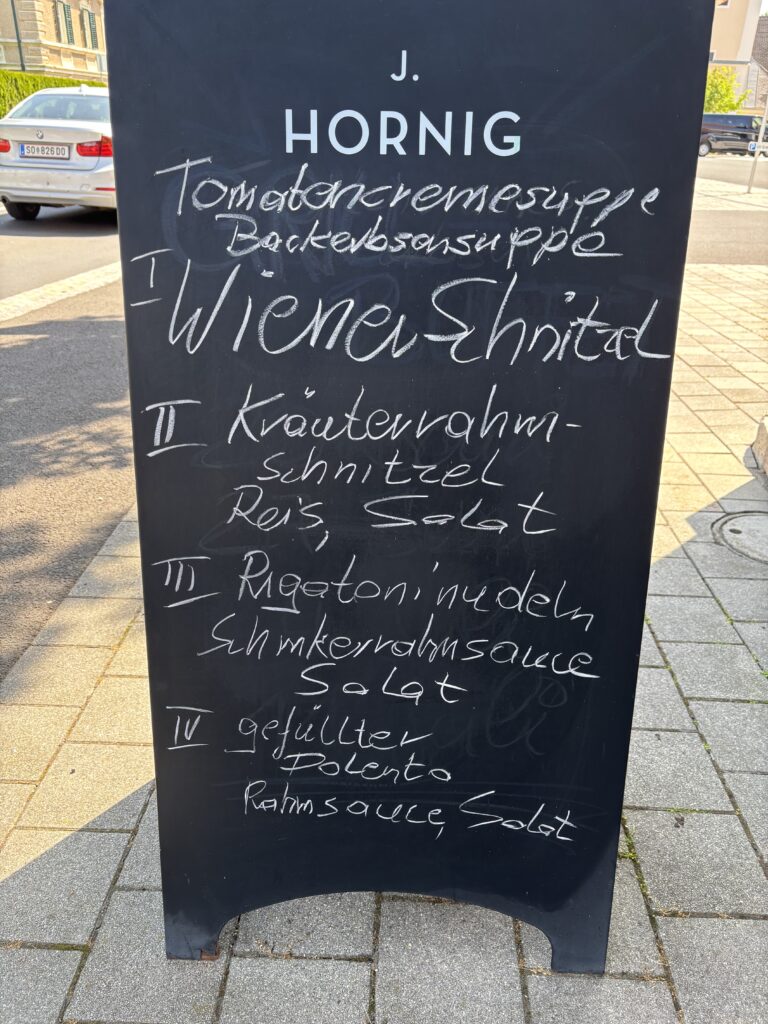 J.
HORNIG
Tomatencremesuppe
Backerbsensuppe
I Wiener Schnitzel
II Kräuterrahm-
schnitzel
Reis, Salat
III Rigatoninudeln
Schinkenrahmsauce
Salat
IV gefüllter
Polenta
Rahmsauce, Salat
SO 826DD